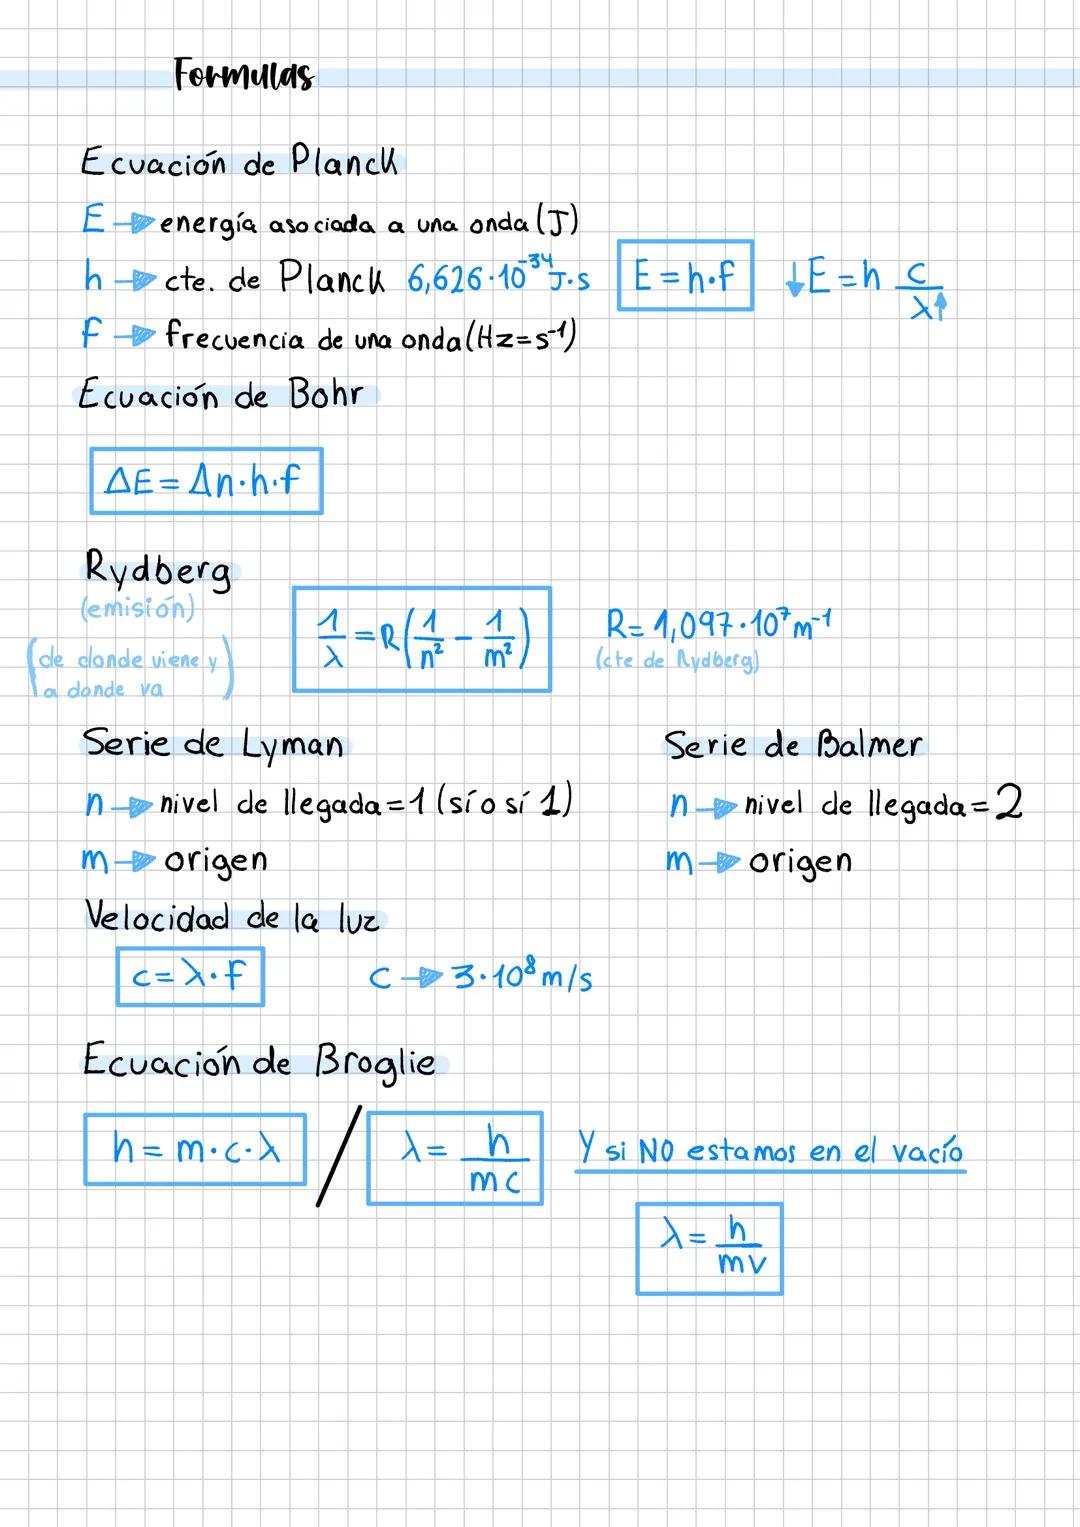 Formulas
Ecuación de Planck
E → energía asociada a una onda (J)
h → cte. de Planck 6,626·10⁻³⁴ J·s
E = h·f
↓E = h c/λ↑
f → frecuencia de una onda (Hz=s⁻¹)
Ecuación de Bohr
ΔE = Δn·h·f
Rydberg
(emisión)
(de donde viene y
a donde va)
1/λ = R(1/n² - 1/m²)
R= 1,097·10⁷ m⁻¹
(cte de Rydberg)
Serie de Lyman
n → nivel de llegada = 1 (sí o sí 1)
m → origen
Serie de Balmer
n → nivel de llegada = 2
m → origen
Velocidad de la luz
c = λ·f
C → 3·10⁸ m/s
Ecuación de Broglie
h = m·c·λ / λ = h/mc
Y si NO estamos en el vacío
λ = h/mv